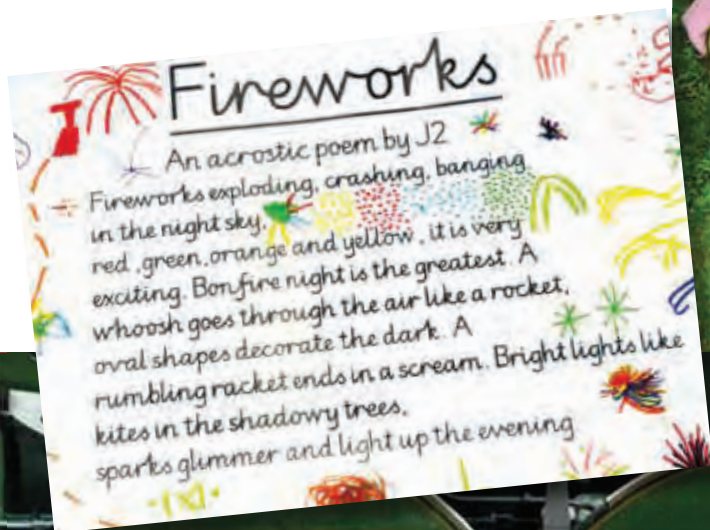 Fireworks
An acrostic poem by J2
Fireworks exploding, crashing, banging
in the night sky.
red, green, orange and yellow, it is very
exciting. Bonfire night is the greatest. A
whoosh goes through the air like a rocket,
oval shapes decorate the dark. A
rumbling racket ends in a scream. Bright lights like
kites in the shadowy trees,
sparks glimmer and light up the evening